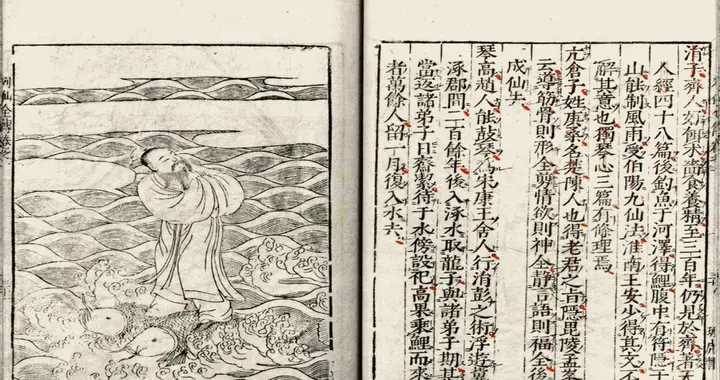 涓子齊人好餌朮啗食養精至三百年仍見於齊著天
人經四十八篇後釣魚于河澤得鯉腹中有符隱于
山能制風雨受伯陽九仙法淮南王安少得其文
解其意也獨琴心三篇有條理焉
亢倉子姓庚桑名楚陳人也得老君之道隱毘陵孟峯
云導筋骨則形全剪情欲則神全靜言語則福全後
成仙去
琴高趙人能鼓琴為宋康王舍人行涓彭之術浮遊冀
涿郡間二百餘年後入涿水取龍子與諸弟子期
當返諸弟子曰齋潔待于水傍設祀高果乘鯉而來
者萬餘人留一月復入水去
列仙全傳卷之